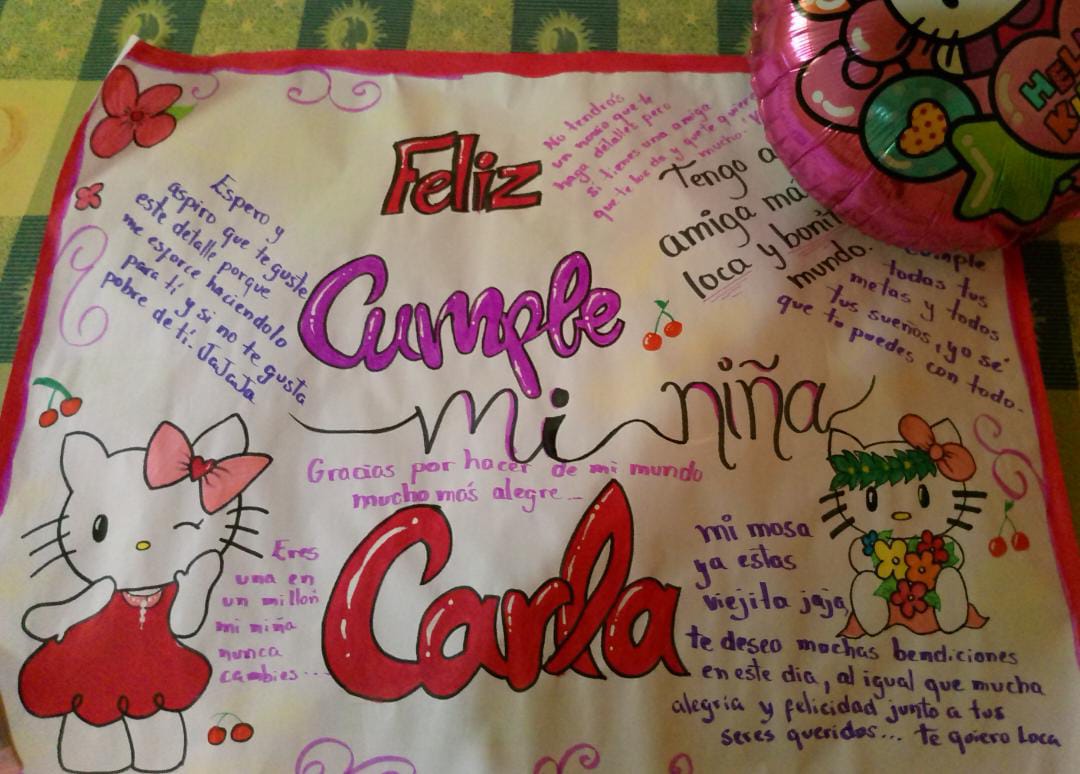 Feliz
Cumple
mi niña
Gracias por hacer de mi mundo
mucho más alegre...
Carla
Espero, y
aspiro que te guste
este detalle porque
me esforce haciendolo
para ti y si no te gusta
pobre de ti. JaJaJa
No tendrás
un novio que te
haga detalles pero
si tienes una amiga
que te los da y que te quiere
mucho!
Tengo a
amiga má
loca y bonit
mundo.
cumple
todas tus
metas y todos
tus sueños, yo sé
que tu puedes con todo.
Eres
una en
un millon
mi niña
nunca
cambies...
mi mosa
ya estas
viejita jaja
te deseo muchas bendiciones
en este dia, al igual que mucha
alegria y felicidad junto a tus
seres queridos... te quiero Loca
HEL
KI